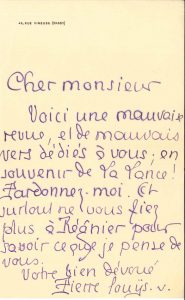 49, RUE VINEUSE (PASSY)
Cher monsieur
Voici une mauvaise
revue, et de mauvais
vers dédiés à vous ; en
souvenir de la lance !
Pardonnez-moi. Et
surtout ne vous fiez
plus à Régnier pour
savoir ce que je pense de
vous.
Votre bien dévoué
Pierre Louÿs.